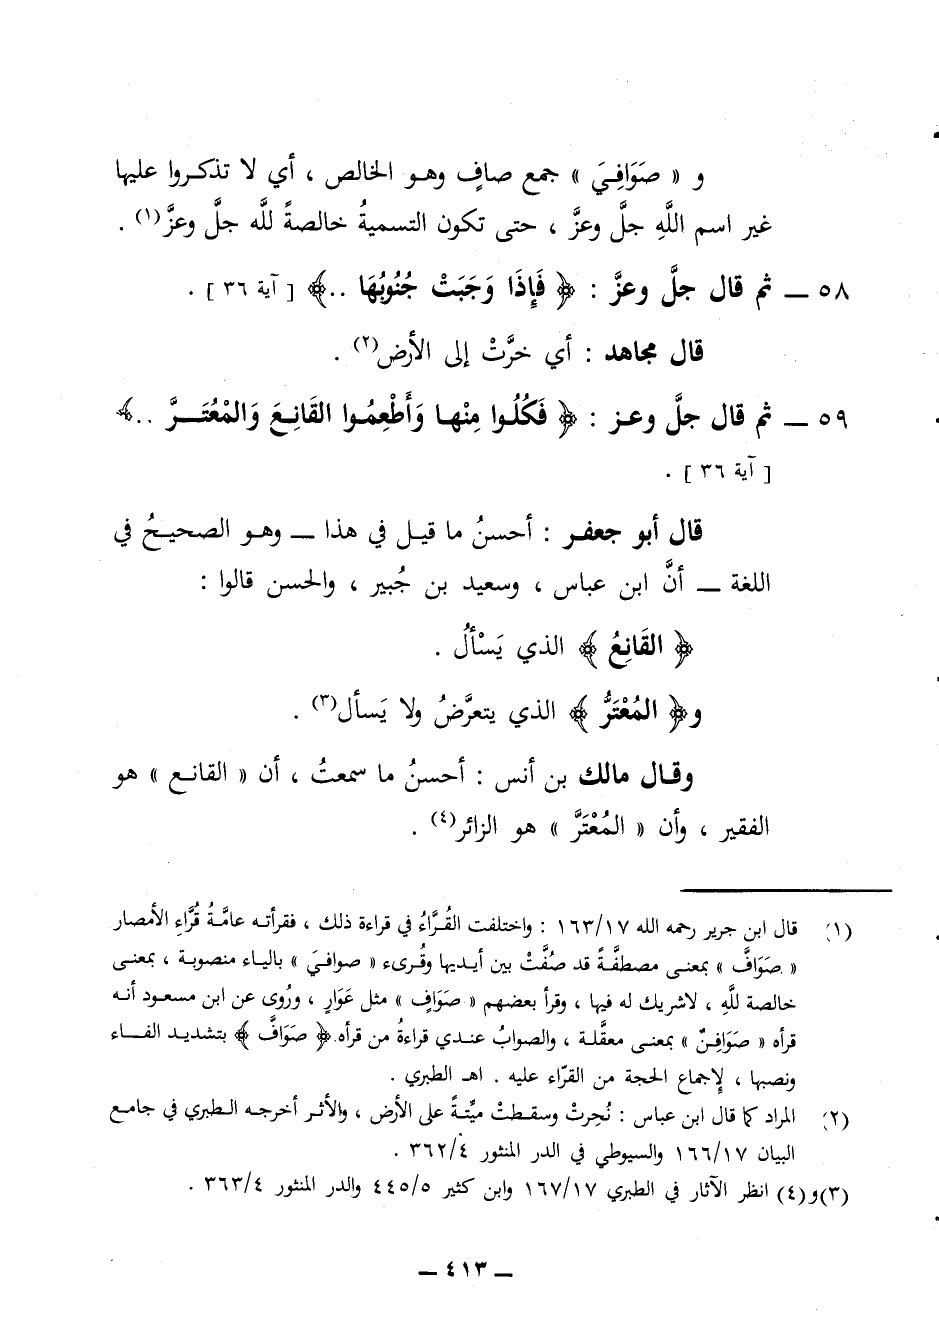 و « صَوَافِيَ » جمع صافٍ وهو الخالص ، أي لا تذكروا عليها
غير اسم اللَّهِ جلَّ وعزَّ ، حتى تكون التسميةُ خالصةً للَّه جلَّ وعزَّ(١) .
٥٨ ــ ثم قال جلَّ وعزَّ : ﴿ فَإِذَا وَجَبَتْ جُنُوبُهَا ..﴾ [ آية ٣٦ ] .
قال مجاهد : أي خرَّتْ إلى الأرض(٢) .
٥٩ ــ ثم قال جلَّ وعز : ﴿ فَكُلُوا مِنْها وَأَطْعِمُوا القَانِعَ وَالمْعْتَرَّ ..﴾
[ آية ٣٦ ] .
قال أبو جعفر : أحسنُ ما قيل في هذا ــ وهو الصحيحُ في
اللغة ــ أنَّ ابن عباس ، وسعيد بن جُبير ، والحسن قالوا :
﴿ القَانِعُ ﴾ الذي يَسْألُ .
و﴿ المُعْتَرُّ ﴾ الذي يتعرَّضُ ولا يَسأل(٣) .
وقال مالك بن أنس : أحسنُ ما سمعتُ ، أن « القانع » هو
الفقير ، وأن « المُعْتَرَّ » هو الزائر(٤) .
(١) قال ابن جرير رحمه الله ١٦٣/١٧ : واختلفت القُرَّاءُ في قراءة ذلك ، فقرأته عامَّةُ قُرَّاءِ الأمصار
« صَوَافَّ » بمعنى مصطفَّةً قد صُفَّتْ بين أيديها وقُرىء « صوافيَ » بالياء منصوبة ، بمعنى
خالصة للَّهِ ، لاشريك له فيها ، وقرأ بعضهم « صَوَافٍ » مثل عَوَارٍ ، ورُوى عن ابن مسعود أنه
قرأه « صَوَافِنْ » بمعنى معقَّلة ، والصوابُ عندي قراءةُ من قرأه ﴿ صَوَافَّ ﴾ بتشديد الفاء
ونصبها ، لإجماع الحجة من القرّاء عليه . اهـ الطبري .
(٢) المراد كما قال ابن عباس : نُحِرتْ وسقطتْ ميِّتةً على الأرض ، والأثر أخرجه الطبري في جامع
البيان ١٦٦/١٧ والسيوطي في الدر المنثور ٣٦٢/٤ .
(٣)و(٤) انظر الآثار في الطبري ١٦٧/١٧ وابن كثير ٤٤٥/٥ والدر المنثور ٣٦٣/٤ .
ــ ٤١٣ ــ